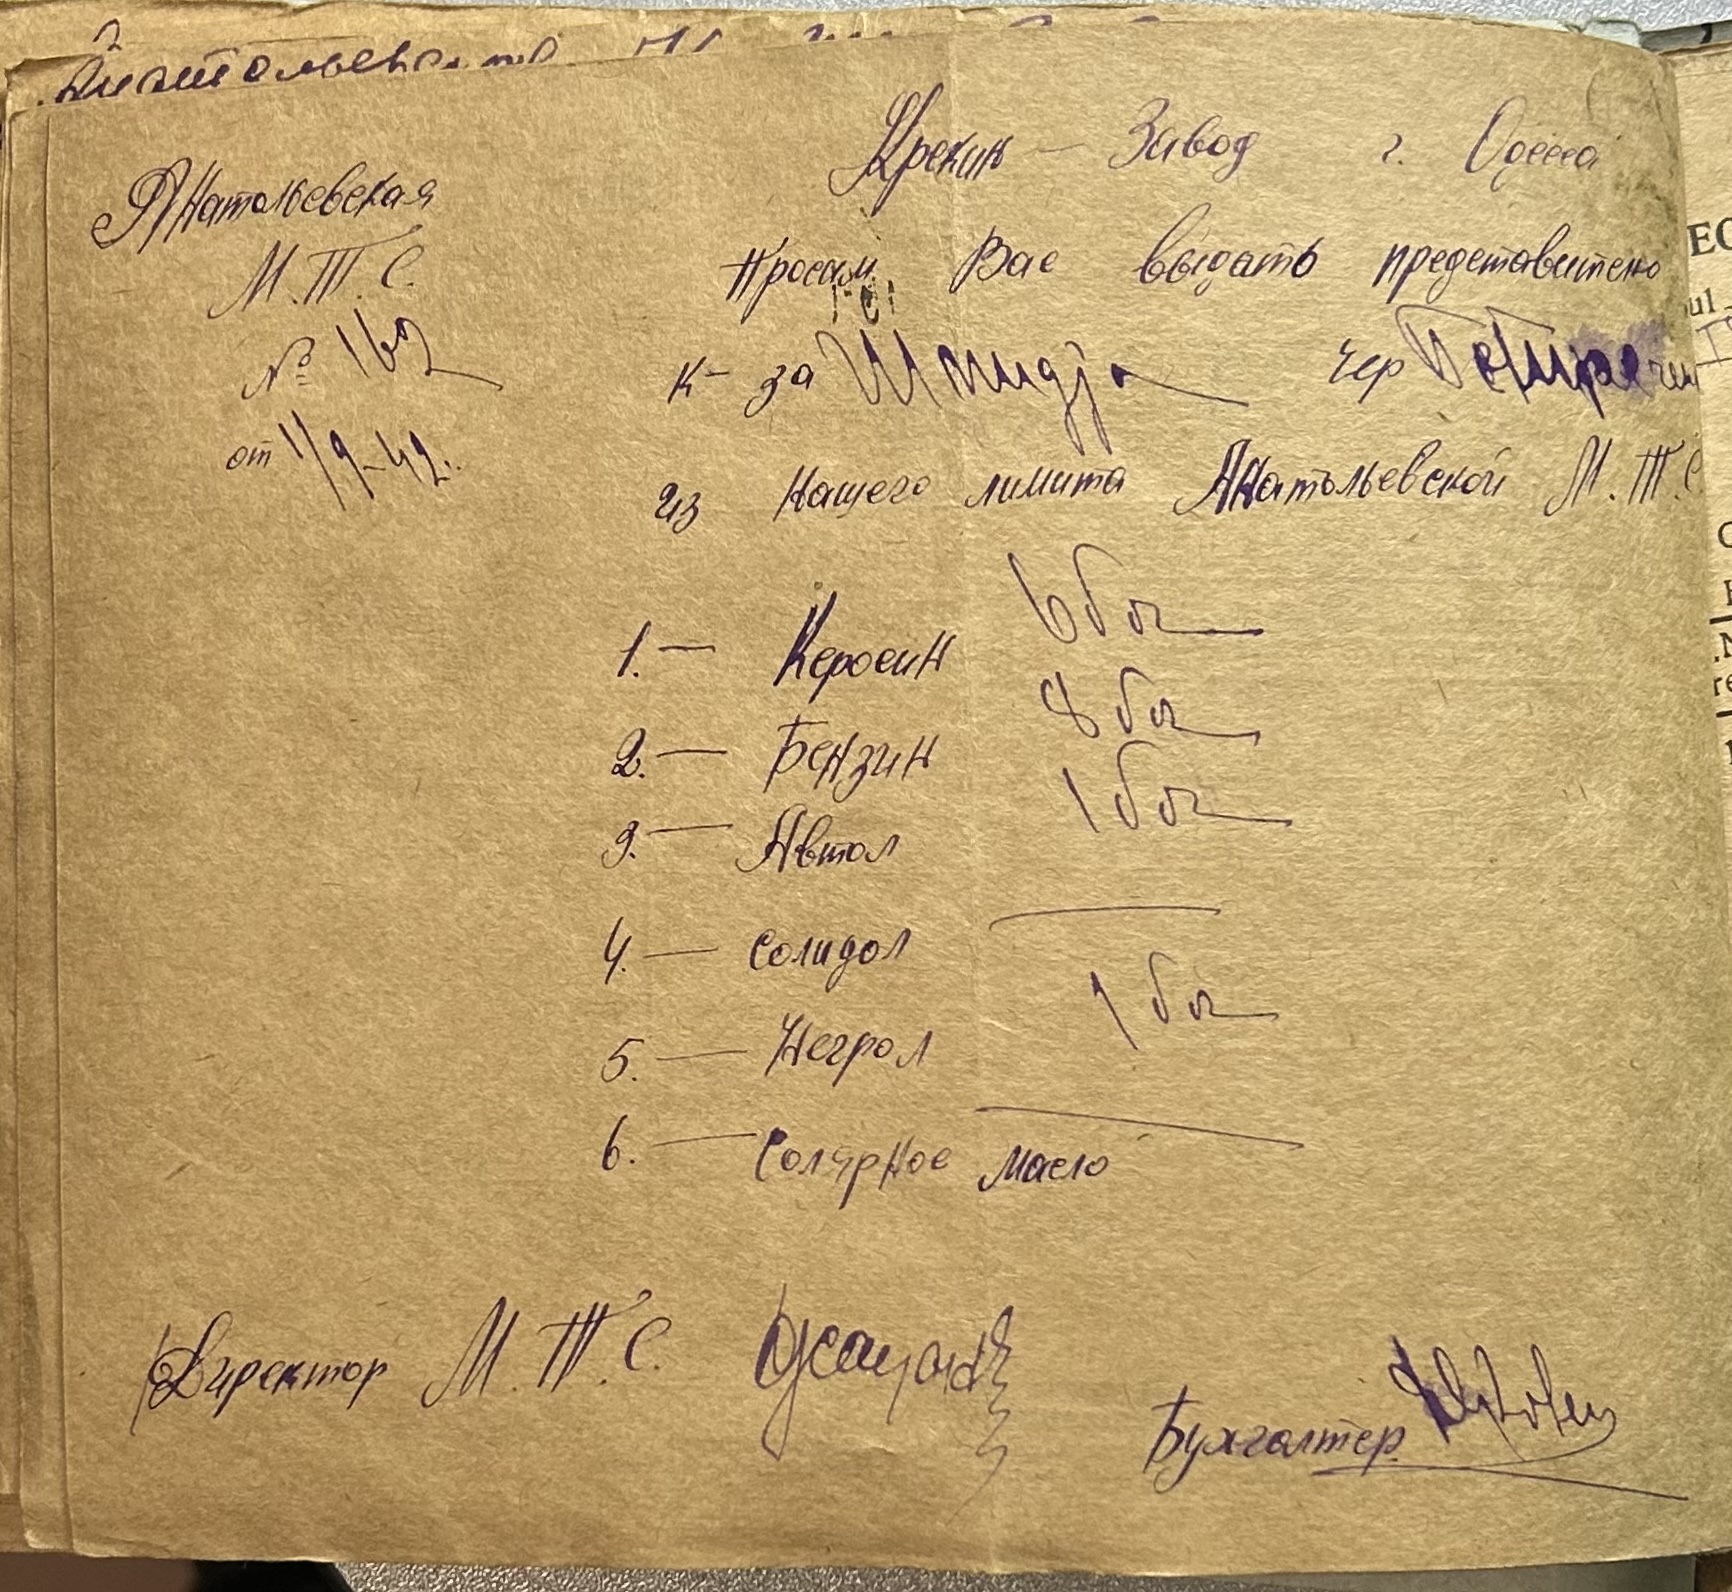 Анатольевская
М.Т.С.
№ 162
от 1/9-42.
Крекин — Завод г. Одесса
Просим Вас выдать представителю
к-за чер
из нашего лимита Анатольевской М.Т.С
1. — Керосин 6 боч
2. — Бензин 8 боч
3. — Автол 1 боч
4. — Солидол —
5. — Негрол 1 боч
6. — Солярное масло —
Директор М.Т.С.
Бухгалтер